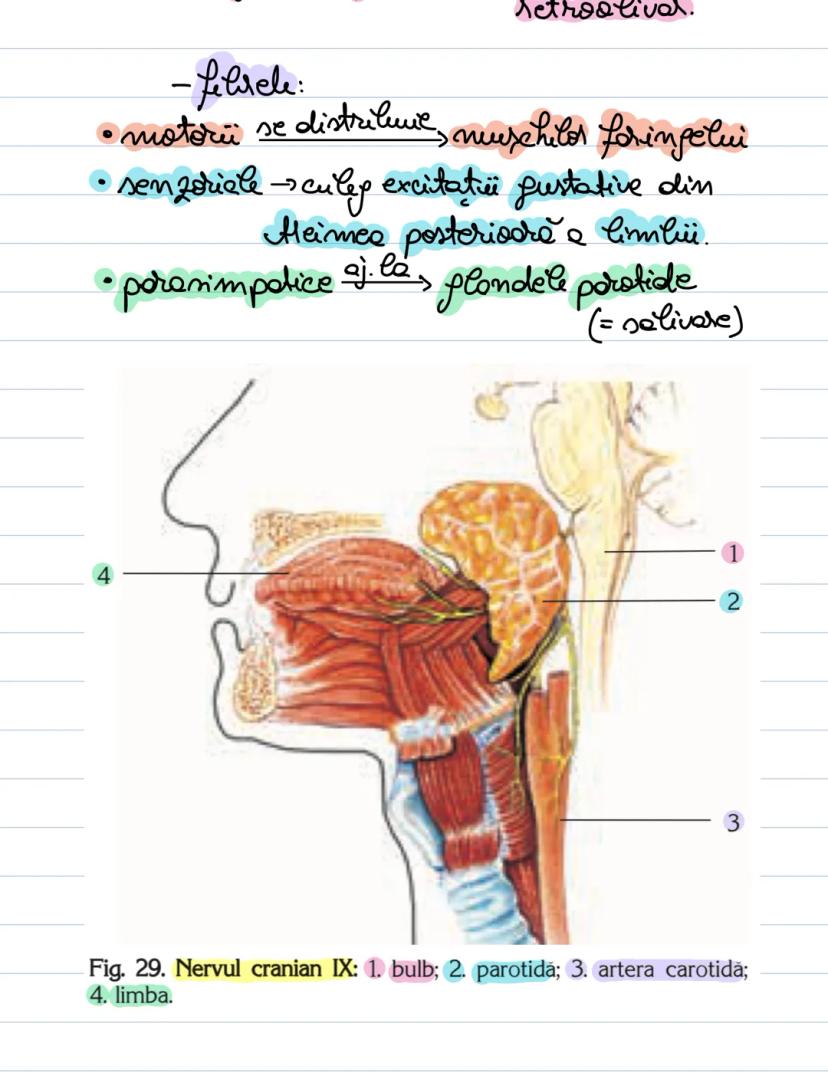 retroolivar.
- fibrele:
• motorii se distribuie → mușchilor faringelui
• senzoriale → culeg excitații gustative din
treimea posterioară a limbii.
• parasimpatice aj. la → glandele parotide
(= salivare)
1
4
2
3
Fig. 29. Nervul cranian IX: 1. bulb; 2. parotidă; 3. artera carotidă;
4. limba.